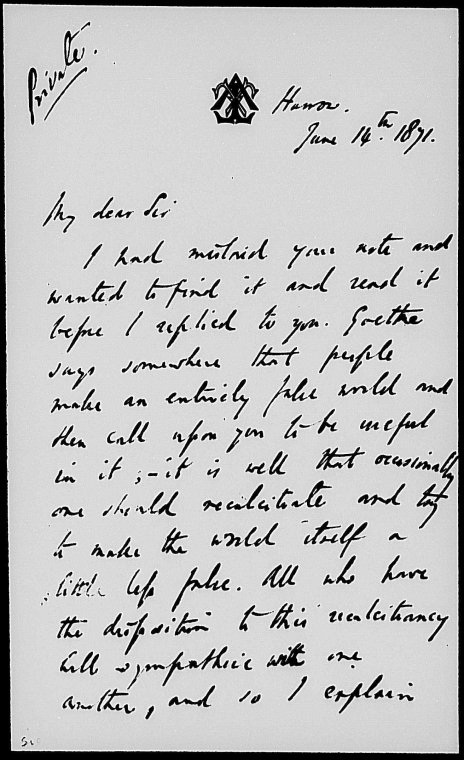 Private.
Harrow.
June 14th. 1871.
My dear Sir
I had mislaid your note and
wanted to find it and read it
before I replied to you. Goethe
says somewhere that people
make an entirely false world and
then call upon you to be useful
in it ; – it is well that occasionally
one should recalcitrate and try
to make the world itself a
little less false. All who have
the disposition to this recalcitrancy
will sympathise with one
another, and so I explain